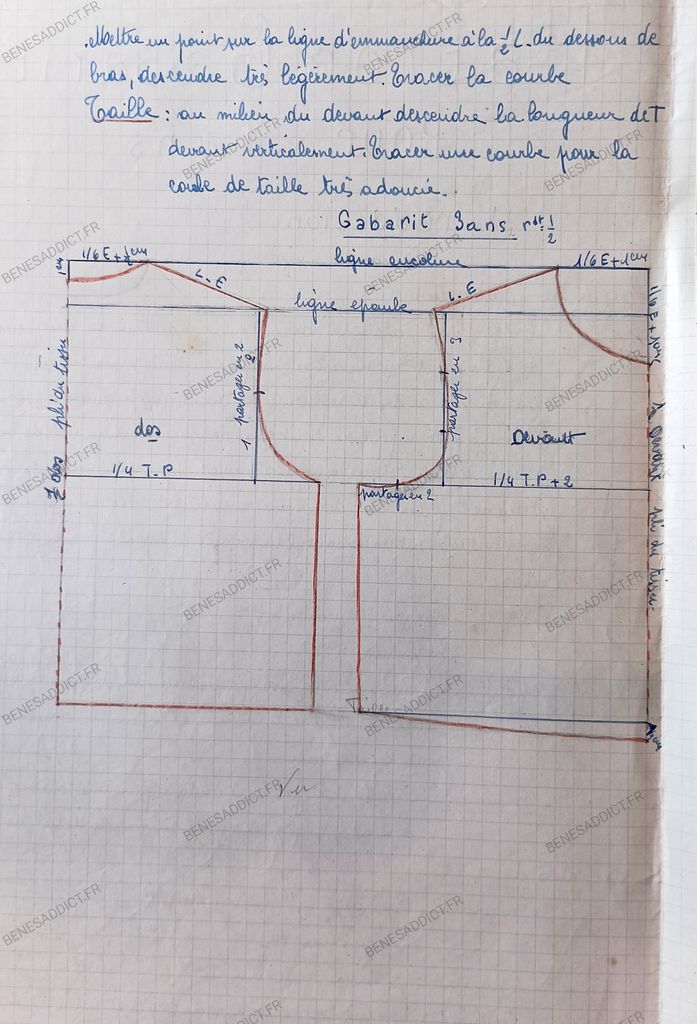 . Mettre un point sur la ligne d'emmanchure à la ½ L. du dessous de
bras, descendre très légèrement. Tracer la courbe
Taille : au milieu du devant descendre la longueur de T
devant verticalement. Tracer une courbe pour la
de taille très adoucie.
Gabarit 3ans ½
ligne encolure
1/6 E + ½ cm
1/6 E + 1cm
1cm
L. E
L. E
ligne épaule
1/6 E + 1cm
½ dos pli du tissu
partager en 2
2
1
partager en 3
dos
Devant
1/4 T.P
1/4 T.P + 2
partager en 2
½ Devant pli du tissu
Taille
Vu
BENESADDICT.FR